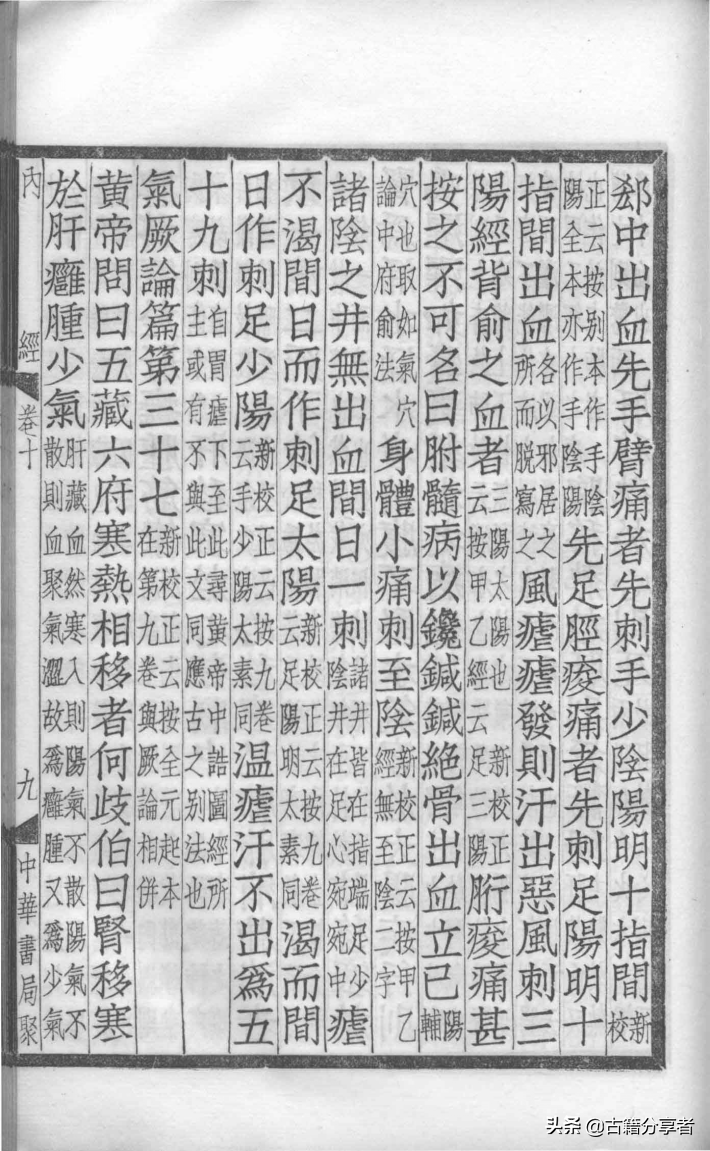 郄中出血先手臂痛者先刺手少陰陽明十指間新校
正云按别本作手陰陽全本亦作手陰陽先足脛痠痛者先刺足陽明十
指間出血各以邪居之所而脱寫之風瘧瘧發則汗出惡風刺三
陽經背俞之血者三陽太陽也新校正云按甲乙經云足三陽胻痠痛甚
按之不可名曰胕髓病以鑱鍼鍼絶骨出血立已陽輔
穴也取如氣穴論中府俞法身體小痛刺至陰新校正云按甲乙經無至陰二字
諸陰之井無出血間日一刺諸井皆在指端足少陰井在足心宛宛中瘧
不渴間日而作刺足太陽新校正云按九卷云足陽明太素同渴而間
日作刺足少陽新校正云按九卷云手少陽太素同温瘧汗不出爲五
十九刺自胃瘧下至此尋黄帝中誥圖經所主或有不與此文同應古之别法也
氣厥論篇第三十七新校正云按全元起本在第九卷與厥論相併
黄帝問曰五藏六府寒熱相移者何歧伯曰腎移寒
於肝癰腫少氣肝藏血然寒入則陽氣不散陽氣不散則血聚氣澀故爲癰腫又爲少氣
内經 卷十 九 中華書局聚
头条 @古籍分享者